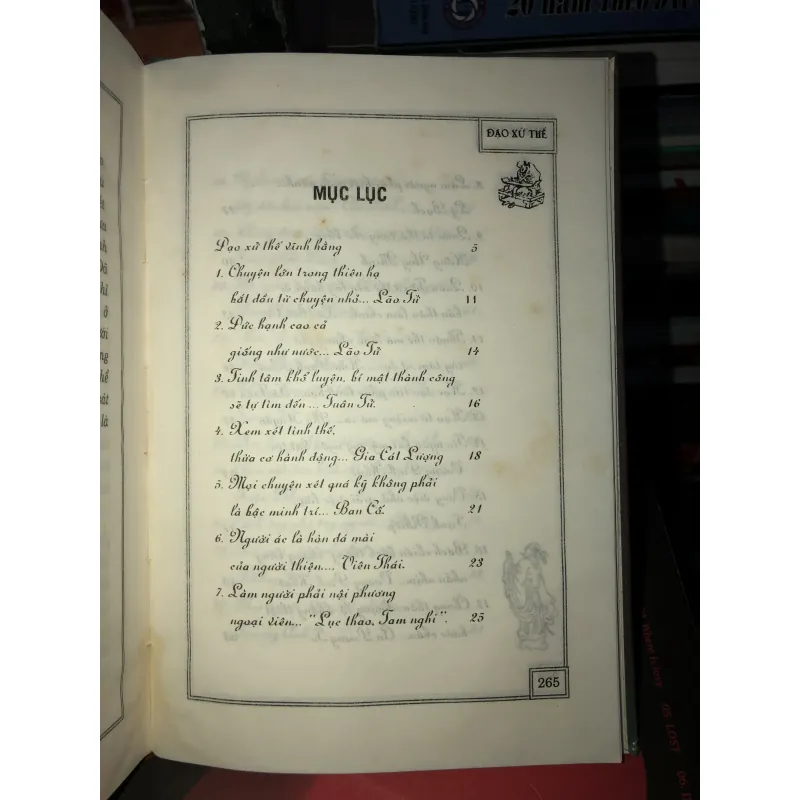 20 năm
ĐẠO XỬ THẾ
MỤC LỤC
Đạo xử thế vĩnh hằng 5
1. Chuyện lớn trong thiên hạ
bắt đầu từ chuyện nhỏ... Lão Tử 11
2. Đức hạnh cao cả
giống như nước... Lão Tử 14
3. Tinh tâm khổ luyện, bí mật thành công
sẽ tự tìm đến ... Tuân Tử. 16
4. Xem xét tình thế,
thừa cơ hành động... Gia Cát Lượng 18
5. Mọi chuyện xét quá kỹ không phải
là bậc minh trí... Ban Cố. 21
6. Người ác là hòn đá mài
của người thiện.... Viên Thái. 23
7. Làm người phải nội phương
ngoại viên... "Lục thao, Tam nghi". 25
265